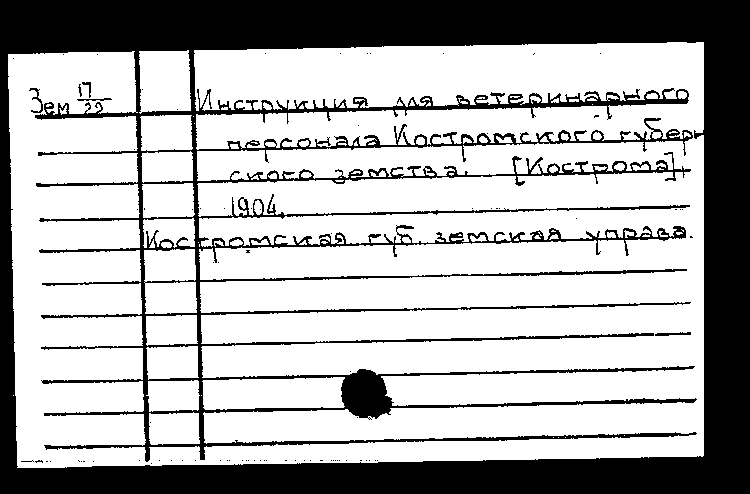 Зем 17/22 Инструкция для ветеринарного
персонала Костромского губерн
ского земства. [Кострома],
1904.
Костромская губ. земская управа.